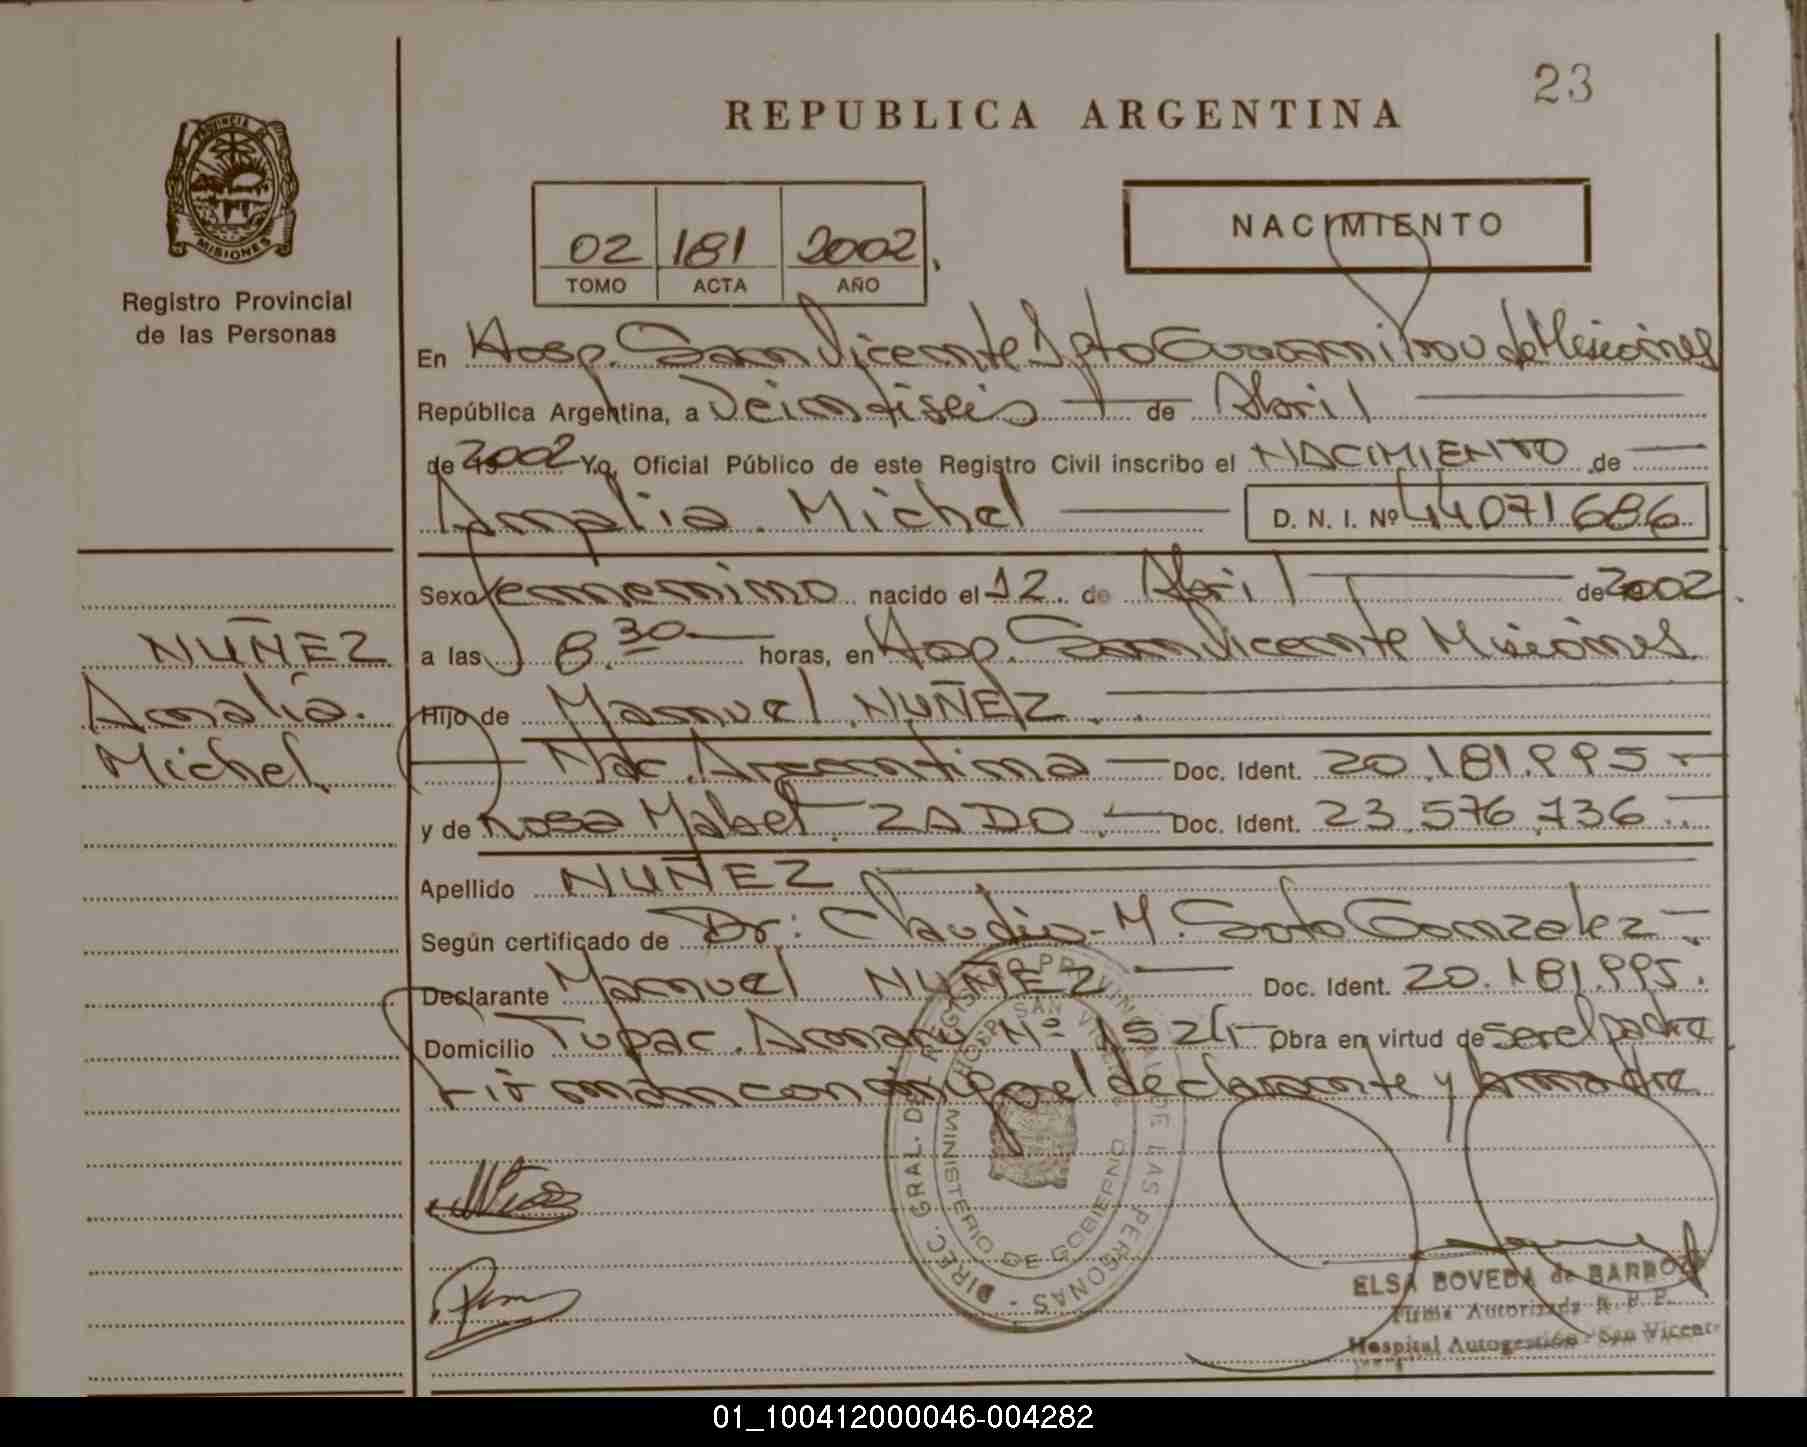 23
REPUBLICA ARGENTINA
PROVINCIA DE
MISIONES
Registro Provincial
de las Personas
02 181 2002
TOMO ACTA AÑO
NACIMIENTO
En Hosp. San Vicente Dpto Guarani Prov de Misiones
República Argentina, a Veintiseis de Abril
de 2002 Yo, Oficial Público de este Registro Civil inscribo el NACIMIENTO de
Amalia Michel D. N. I. Nº 44071686
Sexo femenino nacido el 12 de Abril de 2002
a las 8.30 horas, en Hosp. San Vicente Misiones
NUÑEZ
Amalia
Michel
Hijo de Manuel NUÑEZ
Nac. Argentina Doc. Ident. 20.181.995
y de Rosa Mabel ZADO Doc. Ident. 23.576.736
Apellido NUÑEZ
Según certificado de Dr: Claudio M. Soto Gonzalez
Declarante Manuel NUÑEZ Doc. Ident. 20.181.995.
Domicilio Tupac Amaru Nº 1524 Obra en virtud de ser el padre
Firman conmigo el declarante y la madre
DIREC. GRAL. DEL REGISTRO PROVINCIAL DE LAS PERSONAS
HOSP. SAN VICENTE
MINISTERIO DE GOBIERNO
ELSA BOVEDA de BARBO
Firma Autorizada R. P. P.
Hospital Autogestión San Vicente
01_100412000046-004282